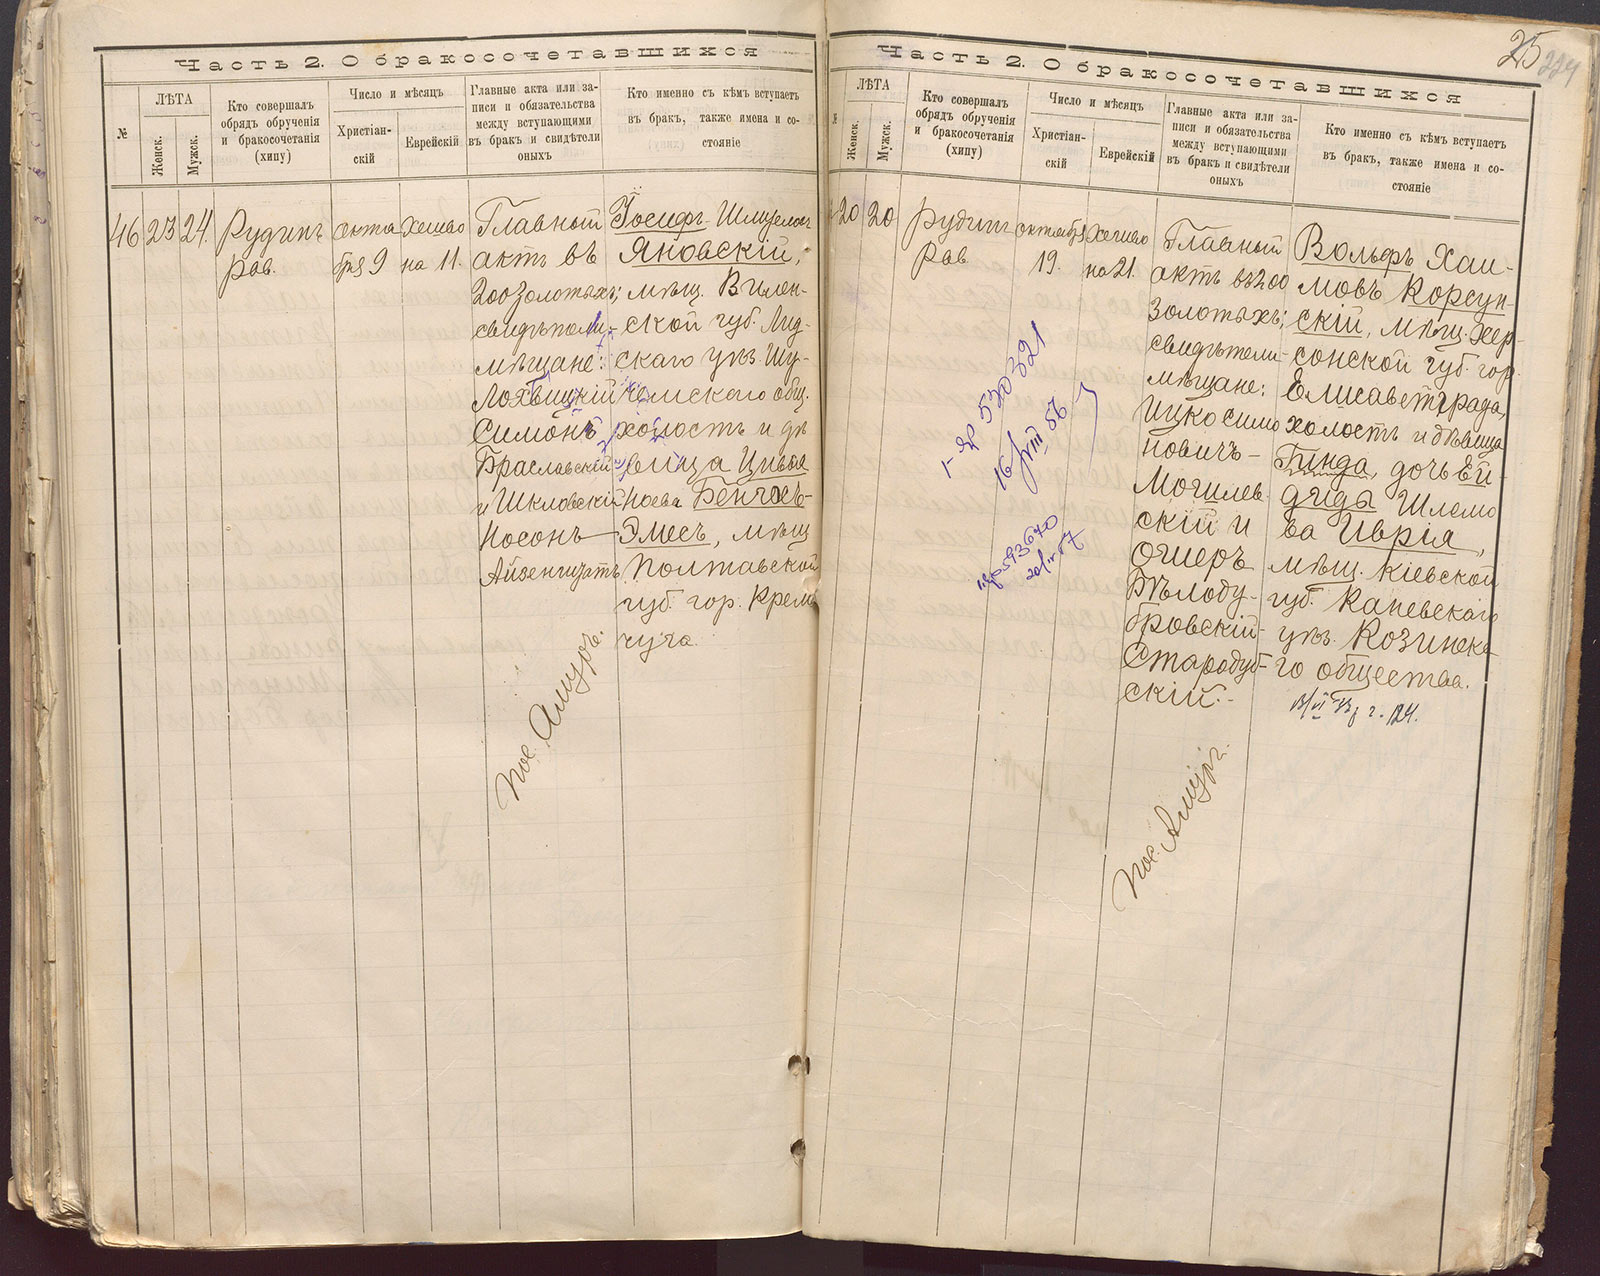 Часть 2. О бракосочетавшихся
№
ЛѢТА
Женск.
Мужск.
Кто совершалъ
обрядъ обрученія
и бракосочетанія
(хипу)
Число и мѣсяцъ
Христіан-
скій
Еврейскій
Главные акта или за-
писи и обязательства
между вступающими
въ бракъ и свидѣтели
оныхъ
Кто именно съ кѣмъ вступаетъ
въ бракъ, также имена и со-
стояніе
46
23
24.
Рудинъ
Рав.
октя
бря 9
Хешво
на 11.
Главный
актъ въ
200 золотыхъ;
свидѣтели:
мѣщане:
Лохвицкій
Симонъ
Браславскій
и Шкловскій
Носонъ
Айзенштатъ
Іосифъ Шмуелов
Яновскій,
мѣщ. Вилен-
ской губ. Лид-
скаго уѣз. Шу-
чемскаго общ.
холостъ и дѣ
вица Цивья
Ноева Бенчоъ-
Эмесъ, мѣщ
Полтавской
губ. гор. Кремен
чуга.
пос. Амуръ.
Часть 2. О бракосочетавшихся
25
224
№
ЛѢТА
Женск.
Мужск.
Кто совершалъ
обрядъ обрученія
и бракосочетанія
(хипу)
Число и мѣсяцъ
Христіан-
скій
Еврейскій
Главные акта или за-
писи и обязательства
между вступающими
въ бракъ и свидѣтели
оныхъ
Кто именно съ кѣмъ вступаетъ
въ бракъ, также имена и со-
стояніе
20
20
Рудинъ
Рав
октября
19.
Хешво
на 21.
Главный
актъ въ 200
золотыхъ;
свидѣтели
мѣщане:
Ицко Симо
новичъ-
Могилев
скій и
Ошеръ
Бѣлоду-
бровскій-
Стародуб-
скій.-
Вольфъ Хаи-
мовъ Корсун-
скій, мѣщ. Хер-
сонской губ. гор.
Елисаветграда,
холостъ и дѣвица
Гинда, дочь Ей-
дида Шлемо
ва Иврія,
мѣщ. Кіевской
губ. Каневскаго
уѣз. Козинска-
го общества.
пос. Амуръ.
530321
16/VIII 56
593670